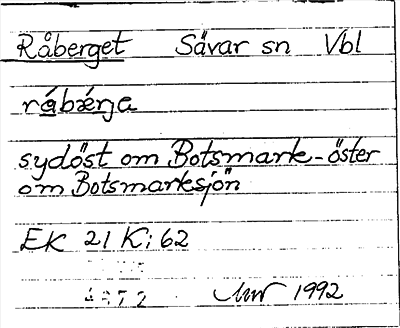 Råberget Sävar sn Vbl
råbǽrja
sydöst om Botsmark-öster
om Botsmarksjön
EK 21 K:62
1992